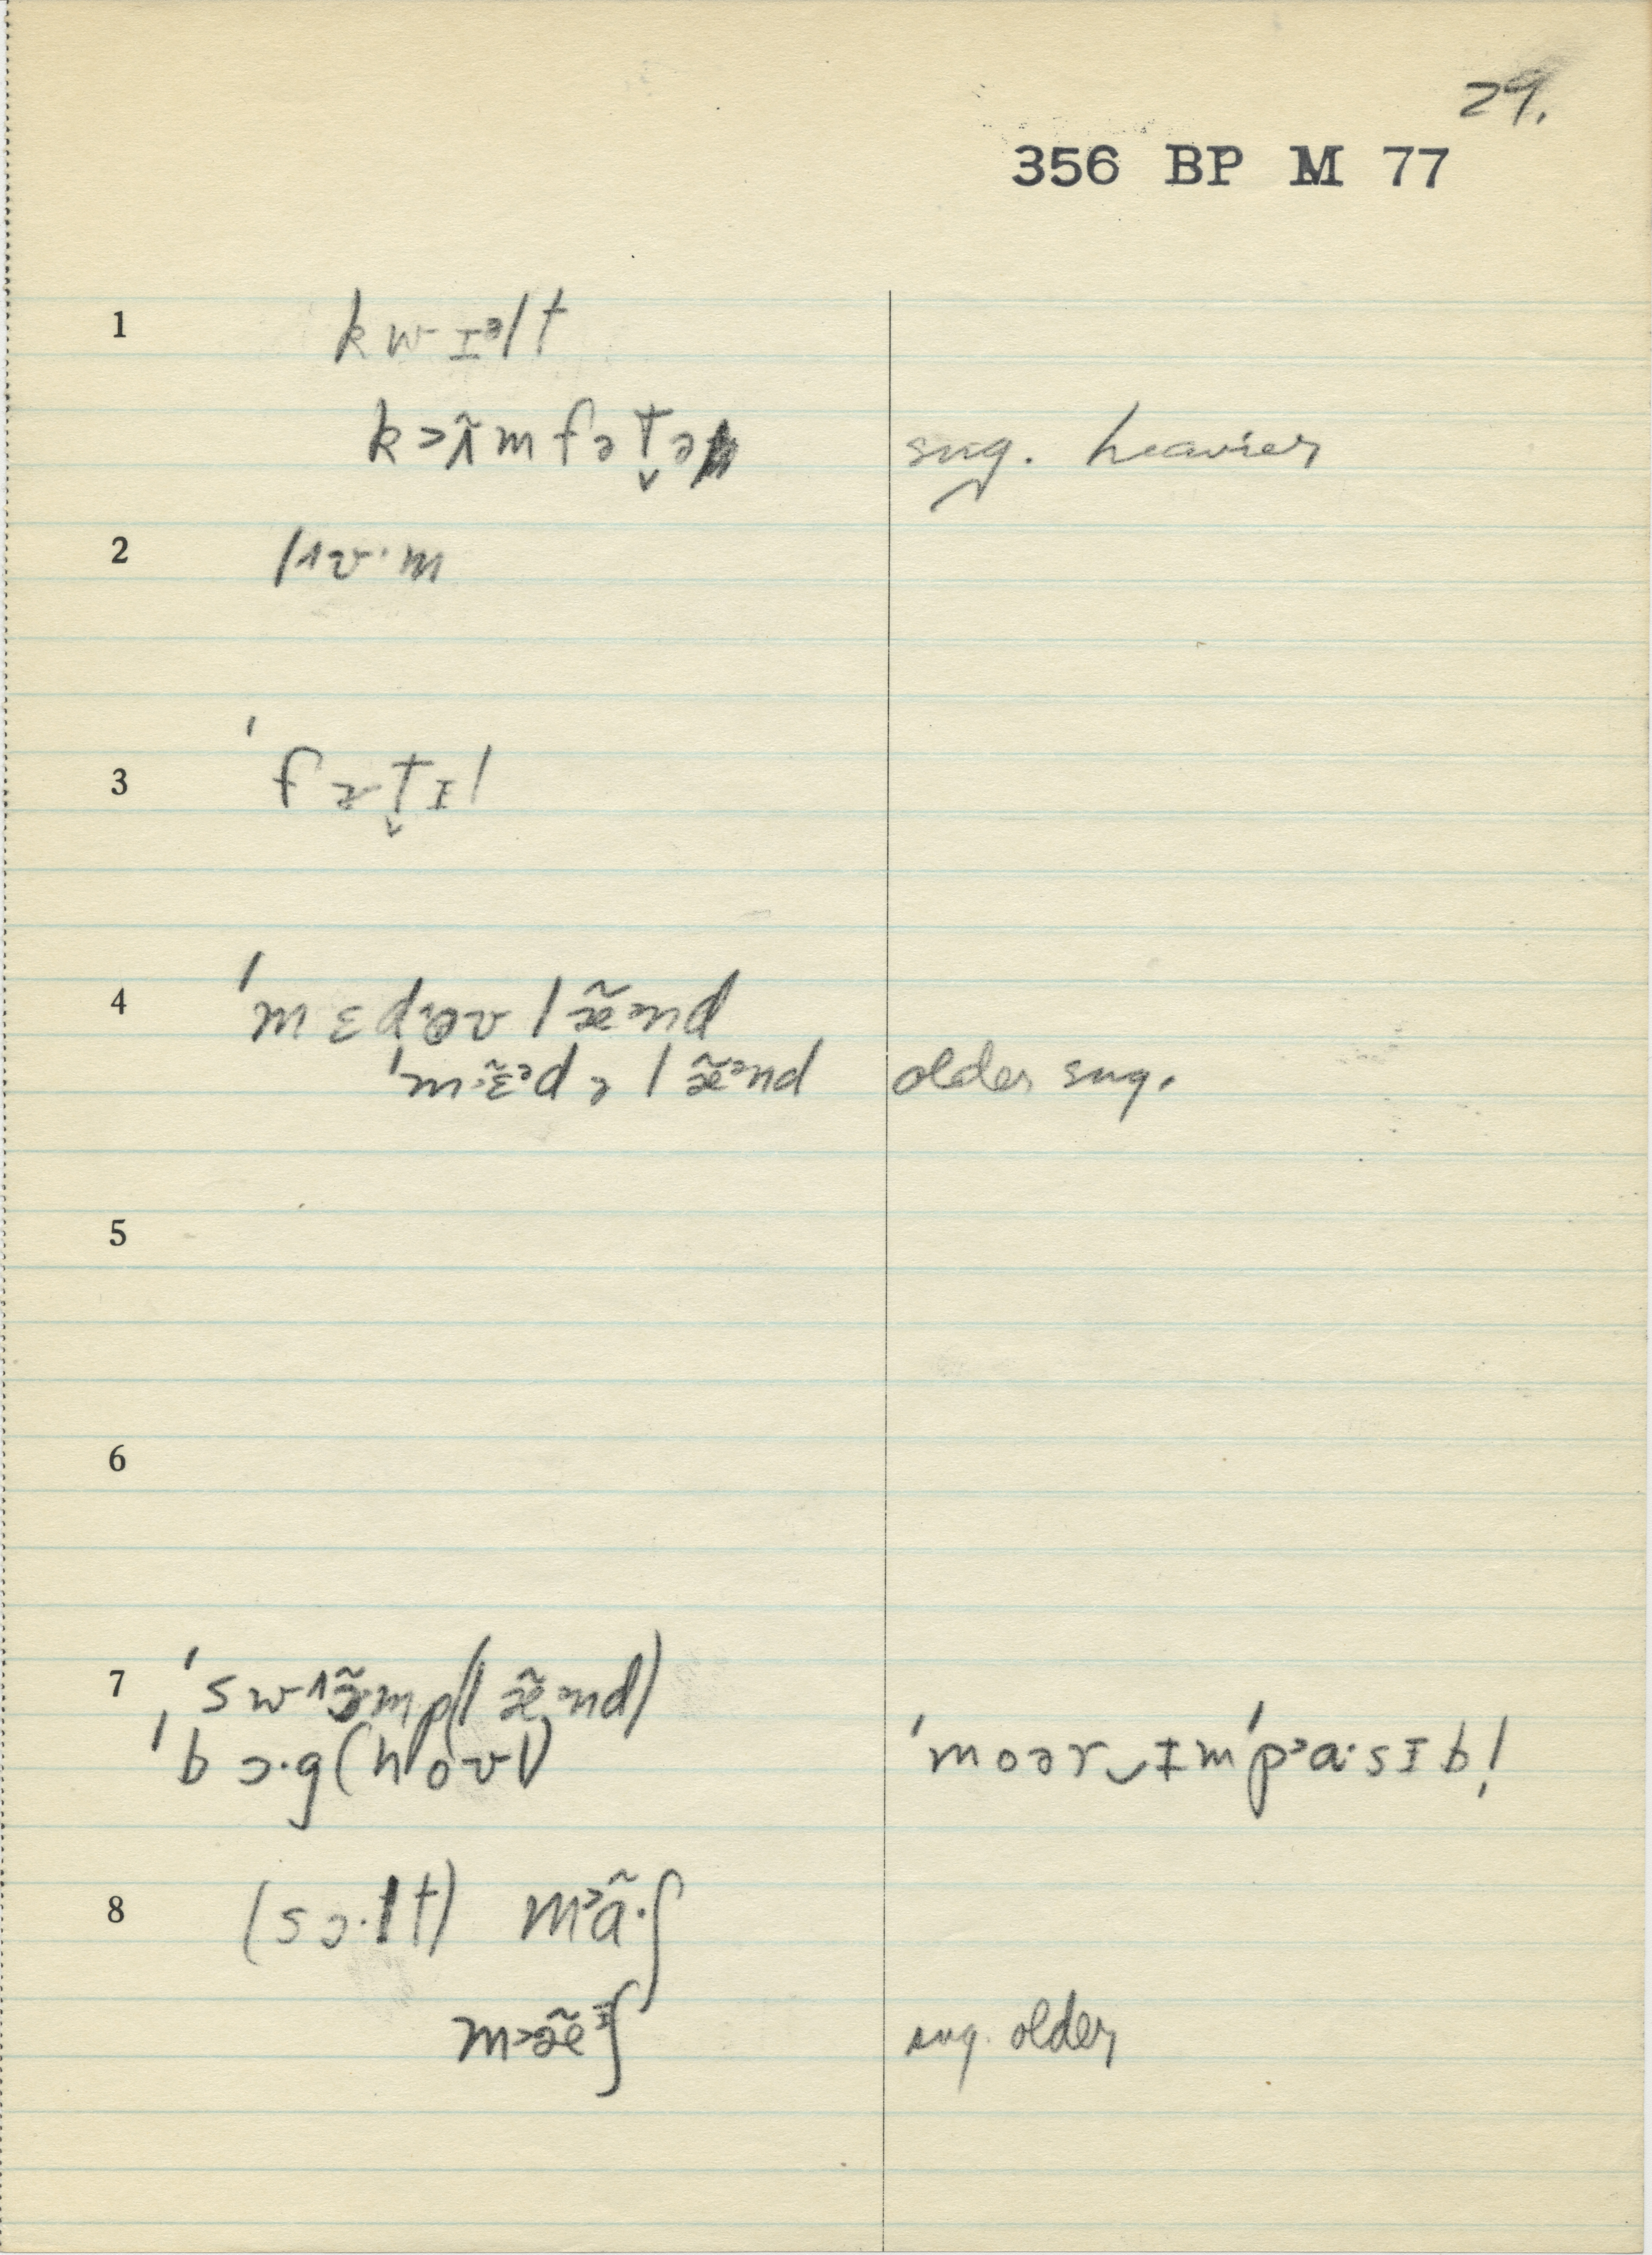 29.
356 BP M 77
1 kwɪᵊlt
k>ʌ̃mfɚt̬ɚ sug. heavier
2 lʌʊ·m
3 ˈfɚt̬ɪl
4 ˈmɛdoʊ læ̃nd
ˈm·ɛ̃dɚ læ̃nd older sug.
5
6
7 ˈswæ̃mp(læ̃nd)
ˈbɔ·g(hoʊl) ˈmoərɪmˈpa·sɪb!
8 (sɔ·lt) m>ã·ʃ
m>æ̃ᶦʃ sug. older